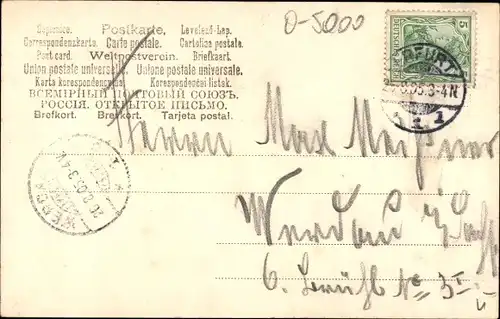 O-5000
Dopisnice. Postkarte. Levelezö-Lap.
Correspondenskarta. Carte postale. Cartolina postale.
Post card. Weltpostverein. Briefkaart.
Union postale universelle. Unione postale universale.
Karta korespondencyjna. Korespondenční lístek.
ВСЕМІРНЫЙ ПОЧТОВЫЙ СОЮЗЪ.
РОССІЯ. ОТКРЫТОЕ ПИСЬМО.
Brefkort. Brevkort. Tarjeta postal.
5
ERFURT
3-4N
1 1
Herrn Max Meißner
Werdau
WERDAU
3-4
6.
No 3